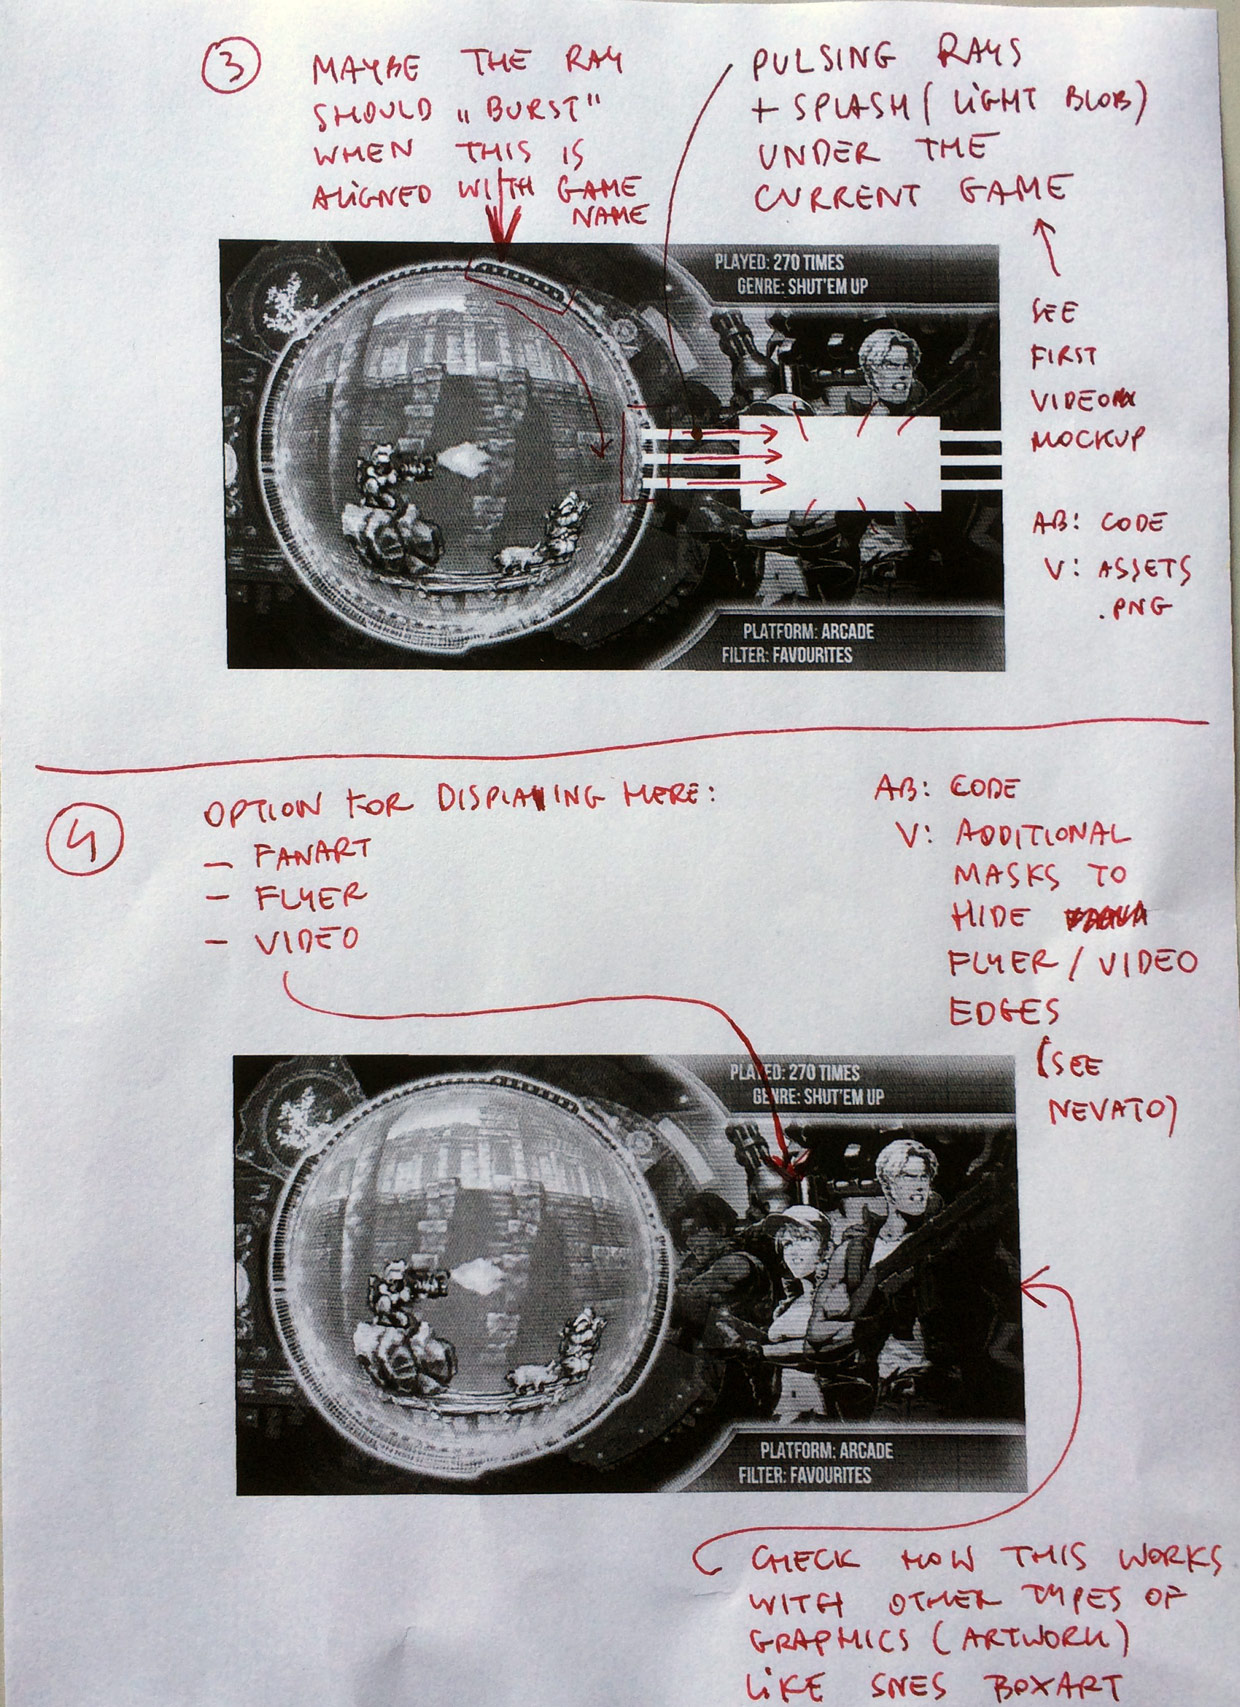 3
MAYBE THE RAY
SHOULD „BURST"
WHEN THIS IS
ALIGNED WITH GAME
NAME
PULSING RAYS
+ SPLASH (LIGHT BLOB)
UNDER THE
CURRENT GAME
SEE
FIRST
VIDEO
MOCKUP
AB: CODE
V: ASSETS
.PNG
PLAYED: 270 TIMES
GENRE: SHUT'EM UP
PLATFORM: ARCADE
FILTER: FAVOURITES
4
OPTION FOR DISPLAYING HERE:
– FANART
– FLYER
– VIDEO
AB: CODE
V: ADDITIONAL
MASKS TO
HIDE
FLYER / VIDEO
EDGES
(SEE
NEVATO)
PLAYED: 270 TIMES
GENRE: SHUT'EM UP
PLATFORM: ARCADE
FILTER: FAVOURITES
CHECK HOW THIS WORKS
WITH OTHER TYPES OF
GRAPHICS (ARTWORK)
LIKE SNES BOXART